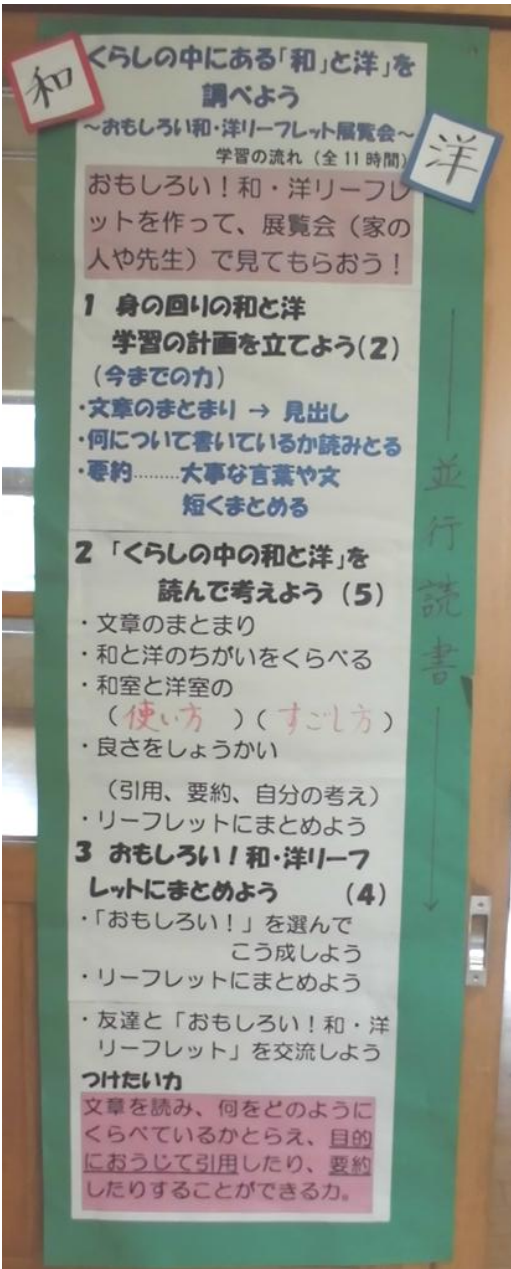 和
くらしの中にある「和」と洋」を
調べよう
洋
～おもしろい和・洋リーフレット展覧会～
学習の流れ（全11時間）
おもしろい！和・洋リーフレ
ットを作って、展覧会（家の
人や先生）で見てもらおう！
1 身の回りの和と洋
学習の計画を立てよう(2)
（今までの力）
・文章のまとまり → 見出し
・何について書いているか読みとる
・要約………大事な言葉や文
短くまとめる
2「くらしの中の和と洋」を
読んで考えよう（5）
・文章のまとまり
・和と洋のちがいをくらべる
・和室と洋室の
（使い方）（すごし方）
・良さをしょうかい
（引用、要約、自分の考え）
・リーフレットにまとめよう
3 おもしろい！和・洋リーフ
レットにまとめよう （4）
・「おもしろい！」を選んで
こう成しよう
・リーフレットにまとめよう
・友達と「おもしろい！和・洋
リーフレット」を交流しよう
つけたい力
文章を読み、何をどのように
くらべているかとらえ、目的
におうじて引用したり、要約
したりすることができる力。
並行読書